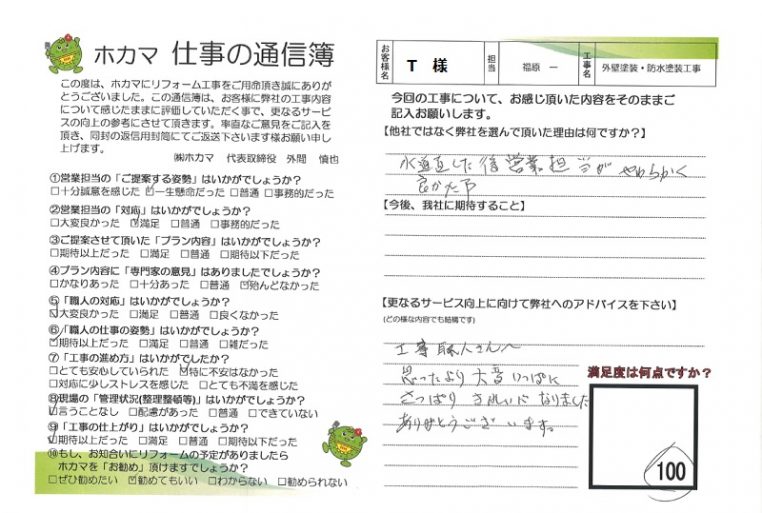 ホカマ 仕事の通信簿
この度は、ホカマにリフォーム工事をご用命頂き誠にありが
とうございました。この通信簿は、お客様に弊社の工事内容
について感じたままに評価していただく事で、更なるサービ
スの向上の参考にさせて頂きます。率直なご意見をご記入を
頂き、同封の返信用封筒にてご返送下さいます様お願い申し
上げます。
㈱ホカマ 代表取締役 外間 慎也
①営業担当の「ご提案する姿勢」はいかがでしょうか?
□十分誠意を感じた ☑一生懸命だった □普通 □事務的だった
②営業担当の「対応」はいかがでしょうか?
□大変良かった ☑満足 □普通 □事務的だった
③ご提案させて頂いた「プラン内容」はいかがでしょうか?
□期待以上だった □満足 □普通 □期待以下だった
④プラン内容に「専門家の意見」はありましたでしょうか?
□かなりあった □十分あった □普通 ☑殆んどなかった
⑤「職人の対応」はいかがでしょうか?
☑大変良かった □満足 □普通 □良くなかった
⑥「職人の仕事の姿勢」はいかがでしょうか?
☑期待以上だった □満足 □普通 □雑だった
⑦「工事の進め方」はいかがでしたか?
□とても安心していられた ☑特に不安はなかった
□対応に少しストレスを感じた □とても不満を感じた
⑧現場の「管理状況(整理整頓等)」はいかがでしょうか?
☑言うことなし □配慮があった □普通 □できていない
⑨「工事の仕上がり」はいかがでしょうか?
☑期待以上だった □満足 □普通 □期待以下だった
⑩もし、お知合いにリフォームの予定がありましたら
ホカマを「お勧め」頂けますでしょうか?
□ぜひ勧めたい ☑勧めてもいい □わからない □勧められない
お客様名 T 様 担当 福原 一 工事名 外壁塗装・防水塗装工事
今回の工事について、お感じ頂いた内容をそのままご
記入お願いします。
【他社ではなく弊社を選んで頂いた理由は何ですか?】
水道直した後営業担当がやわらかく
良かた
【今後、我社に期待すること】
【更なるサービス向上に向けて弊社へのアドバイスを下さい】
(どの様な内容でも結構です)
工事職人さんへ
思ったより大音いっぱに
さっぱりきれいになりました
ありがとうございます。
満足度は何点ですか?
100